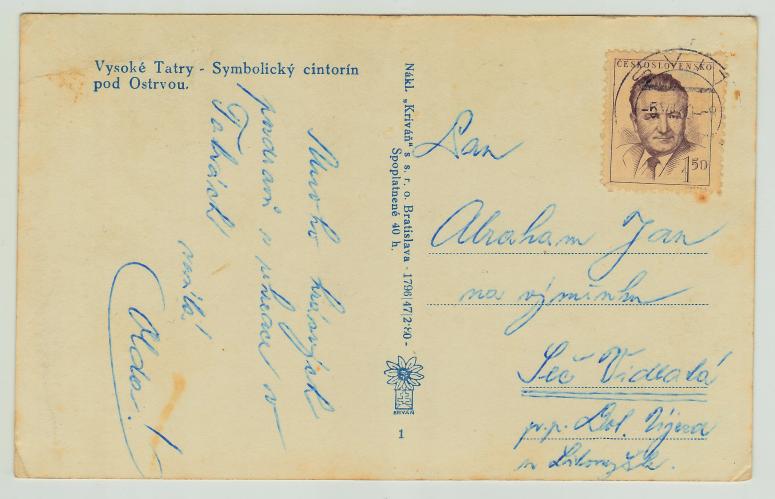 Vysoké Tatry - Symbolický cintorín
pod Ostrvou.
Mnoho krásných
pozdravů z
Tatrách
Olda!
Nákl. „Kriváň“ s s r. o. Bratislava - 1796|47|2·80-
Spoplatnené 40 h.
KRIVÁŇ
1
ČESKOSLOVENSKO
1.50
Pan
Abraham Jan
na výminku
Seč Videalá
p.p. Dol. Újezd
u Litomyšle.